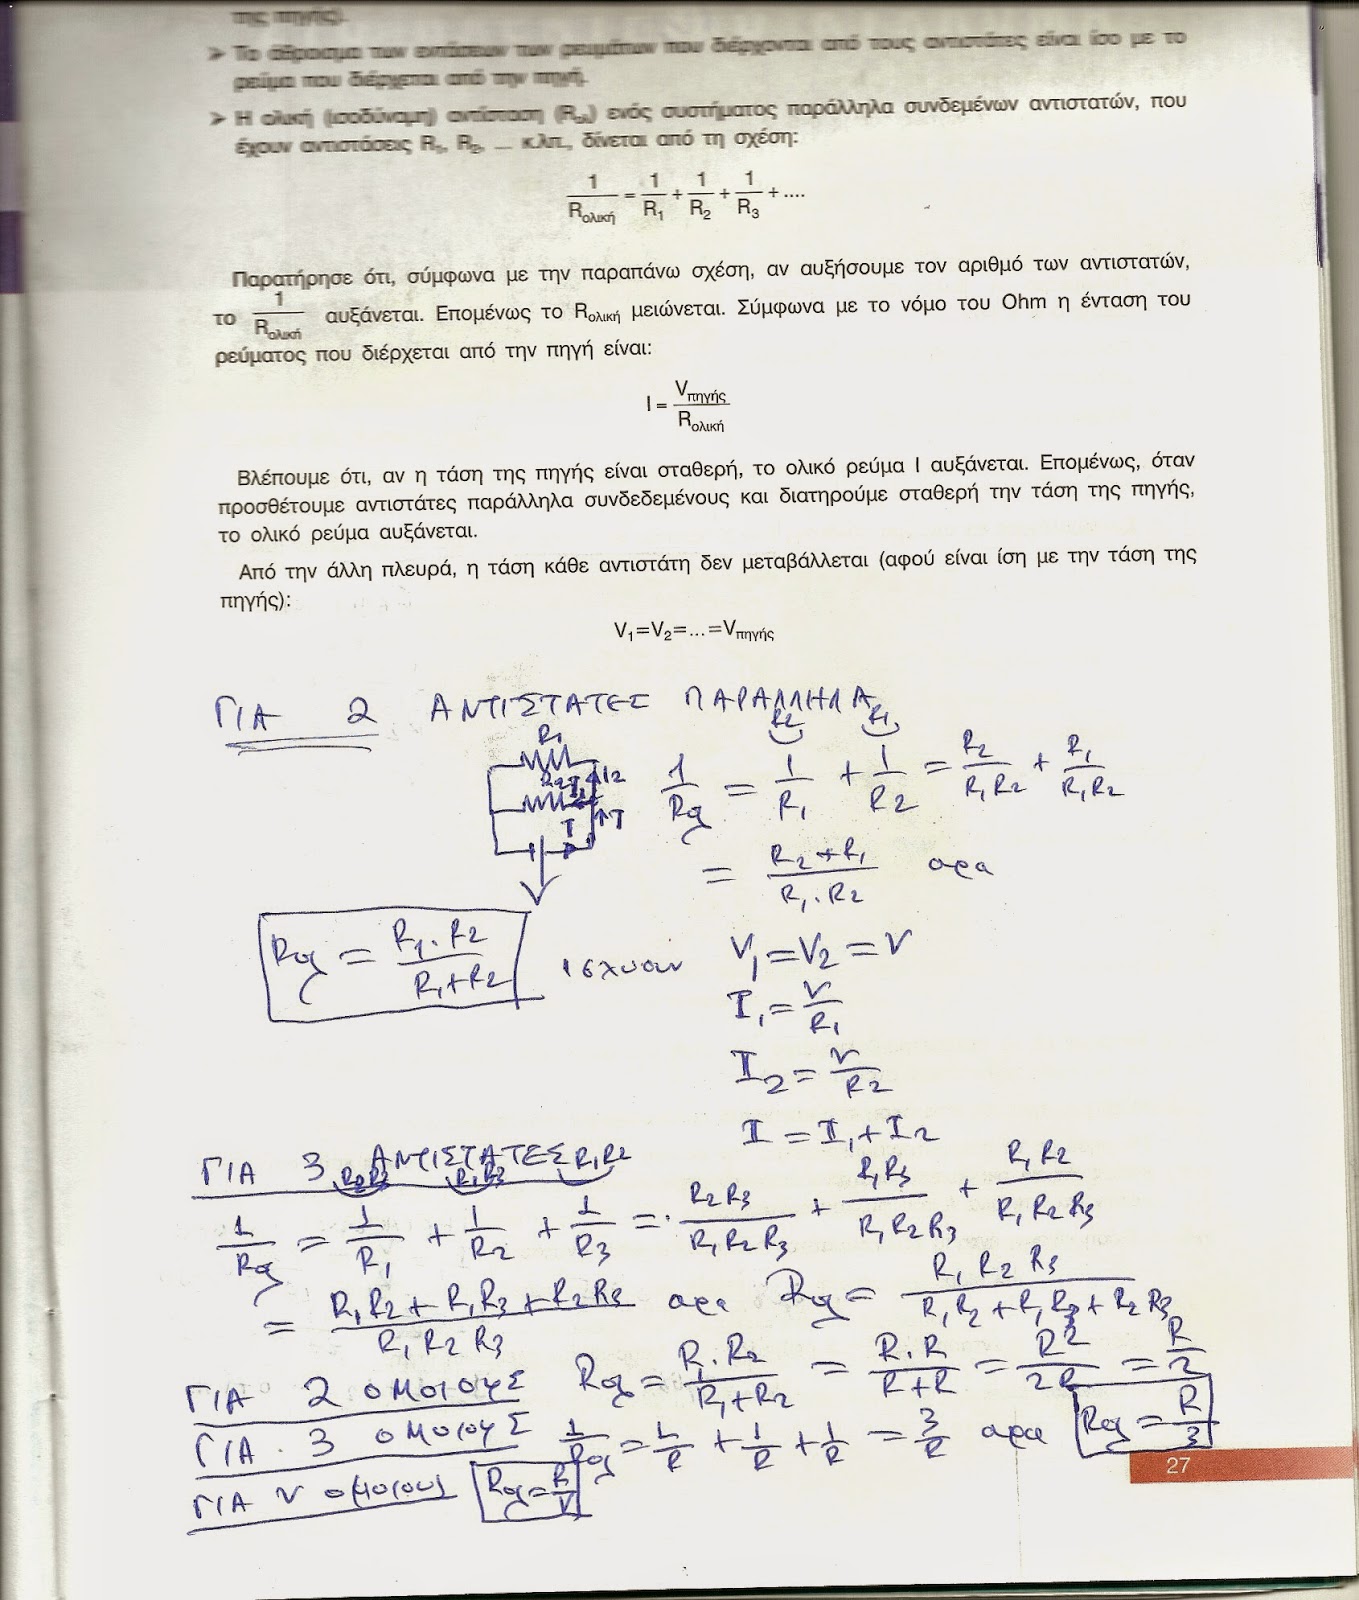 της πηγής).
➤ Το άθροισμα των εντάσεων των ρευμάτων που διέρχονται από τους αντιστάτες είναι ίσο με το
ρεύμα που διέρχεται από την πηγή.
➤ Η ολική (ισοδύναμη) αντίσταση (Rολ) ενός συστήματος παράλληλα συνδεμένων αντιστατών, που
έχουν αντιστάσεις R₁, R₂, ... κ.λπ., δίνεται από τη σχέση:
1/Rολική = 1/R₁ + 1/R₂ + 1/R₃ + ....
Παρατήρησε ότι, σύμφωνα με την παραπάνω σχέση, αν αυξήσουμε τον αριθμό των αντιστατών,
το 1/Rολική αυξάνεται. Επομένως το Rολική μειώνεται. Σύμφωνα με το νόμο του Ohm η ένταση του
ρεύματος που διέρχεται από την πηγή είναι:
I = Vπηγής/Rολική
Βλέπουμε ότι, αν η τάση της πηγής είναι σταθερή, το ολικό ρεύμα I αυξάνεται. Επομένως, όταν
προσθέτουμε αντιστάτες παράλληλα συνδεδεμένους και διατηρούμε σταθερή την τάση της πηγής,
το ολικό ρεύμα αυξάνεται.
Από την άλλη πλευρά, η τάση κάθε αντιστάτη δεν μεταβάλλεται (αφού είναι ίση με την τάση της
πηγής):
V₁=V₂=...=Vπηγής
ΓΙΑ 2 ΑΝΤΙΣΤΑΤΕΣ ΠΑΡΑΛΛΗΛΑ
R₂ R₁
R₁
R₂ I₁ I₂
I I
1/Rολ = 1/R₁ + 1/R₂ = R₂/R₁R₂ + R₁/R₁R₂
= (R₂+R₁)/(R₁.R₂) αρα
Rολ = (R₁.R₂)/(R₁+R₂) ισχυουν V₁=V₂=V
I₁=V/R₁
I₂=V/R₂
I=I₁+I₂
ΓΙΑ 3 ΑΝΤΙΣΤΑΤΕΣ
R₂R₃ R₁R₃ R₁R₂
1/Rολ = 1/R₁ + 1/R₂ + 1/R₃ = R₂R₃/R₁R₂R₃ + R₁R₃/R₁R₂R₃ + R₁R₂/R₁R₂R₃
= (R₁R₂+R₁R₃+R₂R₃)/R₁R₂R₃ αρα Rολ = R₁R₂R₃/(R₁R₂+R₁R₃+R₂R₃)
ΓΙΑ 2 ΟΜΟΙΟΥΣ Rολ = (R₁.R₂)/(R₁+R₂) = (R.R)/(R+R) = R²/2R = R/2
ΓΙΑ 3 ΟΜΟΙΟΥΣ 1/Rολ = 1/R + 1/R + 1/R = 3/R αρα Rολ = R/3
ΓΙΑ ν ομοιους Rολ = R/ν
27